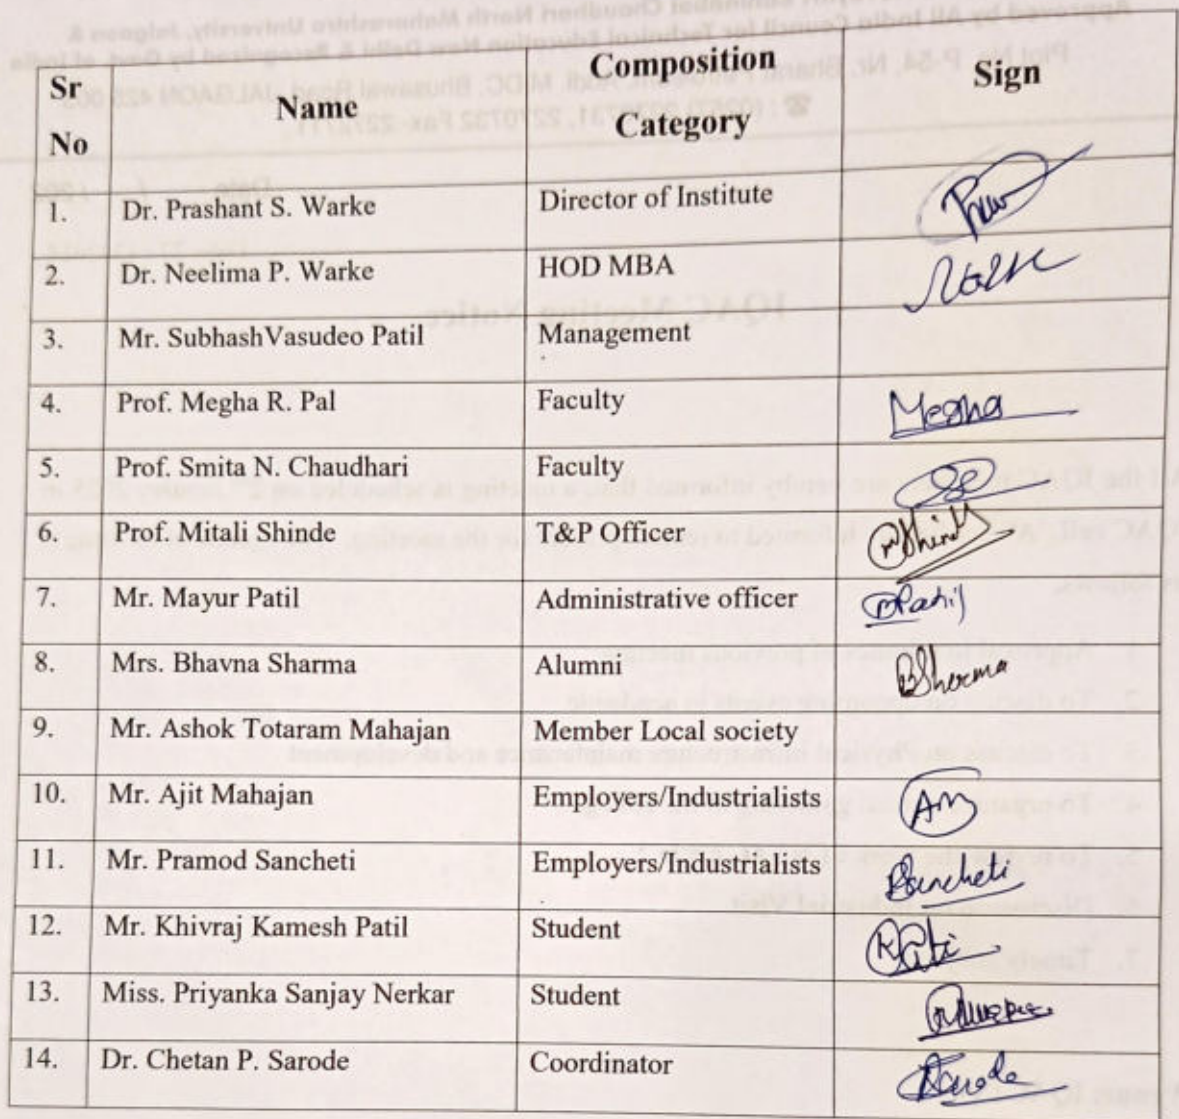 Sr No Name Composition Category Sign
1. Dr. Prashant S. Warke Director of Institute
2. Dr. Neelima P. Warke HOD MBA
3. Mr. SubhashVasudeo Patil Management
4. Prof. Megha R. Pal Faculty Megha
5. Prof. Smita N. Chaudhari Faculty
6. Prof. Mitali Shinde T&P Officer MShinde
7. Mr. Mayur Patil Administrative officer MPatil
8. Mrs. Bhavna Sharma Alumni BSharma
9. Mr. Ashok Totaram Mahajan Member Local society
10. Mr. Ajit Mahajan Employers/Industrialists AM
11. Mr. Pramod Sancheti Employers/Industrialists PSancheti
12. Mr. Khivraj Kamesh Patil Student
13. Miss. Priyanka Sanjay Nerkar Student
14. Dr. Chetan P. Sarode Coordinator